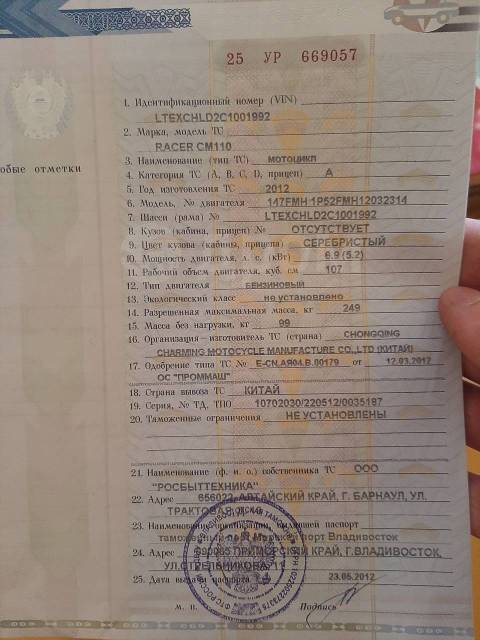 25 УР 669057
обые отметки
1. Идентификационный номер (VIN)
LTEXCHLD2C1001992
2. Марка, модель ТС
RACER CM110
3. Наименование (тип ТС) МОТОЦИКЛ
4. Категория ТС (A, B, C, D, прицеп) A
5. Год изготовления ТС 2012
6. Модель, № двигателя 147FMH 1P52FMH12032314
7. Шасси (рама) № LTEXCHLD2C1001992
8. Кузов (кабина, прицеп) № ОТСУТСТВУЕТ
9. Цвет кузова (кабины, прицепа) СЕРЕБРИСТЫЙ
10. Мощность двигателя, л. с. (кВт) 6.9 (5.2)
11. Рабочий объем двигателя, куб. см 107
12. Тип двигателя БЕНЗИНОВЫЙ
13. Экологический класс не установлено
14. Разрешенная максимальная масса, кг 249
15. Масса без нагрузки, кг 99
16. Организация – изготовитель ТС (страна) CHONGQING
CHARMING MOTOCYCLE MANUFACTURE CO.,LTD (КИТАЙ)
17. Одобрение типа ТС № E-CN.АЯ04.B.00179 от 12.03.2012
ОС "ПРОММАШ"
18. Страна вывоза ТС КИТАЙ
19. Серия, № ТД, ТПО 10702030/220512/0035187
20. Таможенные ограничения НЕ УСТАНОВЛЕНЫ
21. Наименование (ф. и. о.) собственника ТС ООО
"РОСБЫТТЕХНИКА"
22. Адрес 656022, АЛТАЙСКИЙ КРАЙ, Г. БАРНАУЛ, УЛ.
23. Наименование организации, выдавшей паспорт
таможенный Порт Владивосток
24. Адрес 690065 ПРИМОРСКИЙ КРАЙ, Г.ВЛАДИВОСТОК,
УЛ.СТРЕЛЬНИКОВА, 11
25. Дата выдачи паспорта 23.05.2012
М. П. Подпись